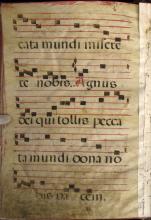 cata mundi misere
re nobis. Agnus
dei qui tollis pecca
ta mundi dona no
bis pa cem.